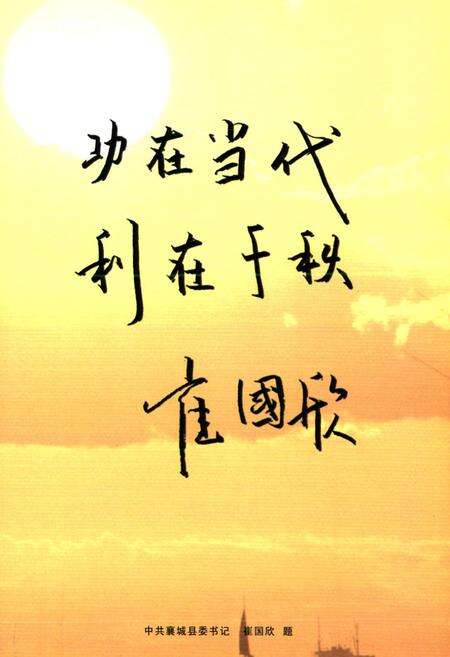 功在当代
利在千秩
崔國欣
中共襄城县委书记 崔国欣 题